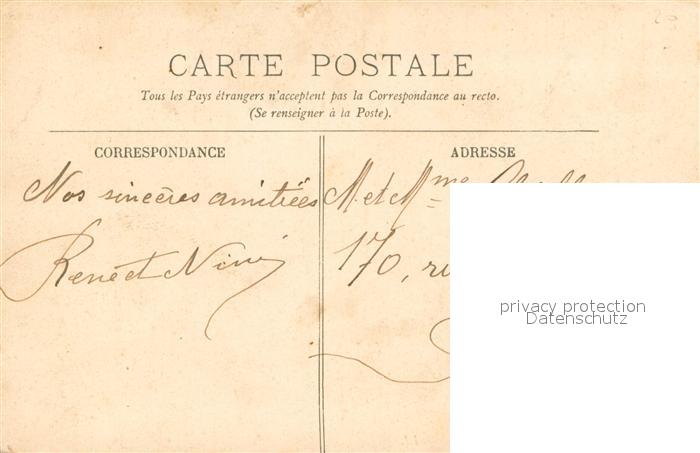 CARTE POSTALE
Tous les Pays étrangers n'acceptent pas la Correspondance au recto.
(Se renseigner à la Poste).
CORRESPONDANCE
Nos sincères amitiées
René et Nini
ADRESSE
M. et Mme
170, ru
privacy protection
Datenschutz